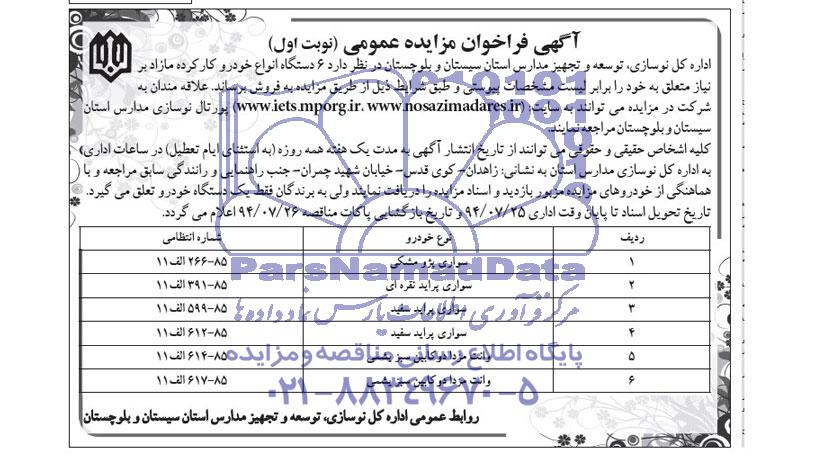 آگهی فراخوان مزایده عمومی (نوبت اول)
اداره کل نوسازی، توسعه و تجهیز مدارس استان سیستان و بلوچستان در نظر دارد ۶ دستگاه انواع خودرو کارکرده مازاد بر
نیاز متعلق به خود را برابر لیست مشخصات پیوستی و طبق شرایط ذیل از طریق مزایده به فروش برساند. علاقه مندان به
شرکت در مزایده می توانند به سایت: (www.iets.mporg.ir. www.nosazimadares.ir) پورتال نوسازی مدارس استان
سیستان و بلوچستان مراجعه نمایند.
کلیه اشخاص حقیقی و حقوقی می توانند از تاریخ انتشار آگهی به مدت یک هفته همه روزه (به استثنای ایام تعطیل) در ساعات اداری)
به اداره کل نوسازی مدارس استان به نشانی: زاهدان- کوی قدس- خیابان شهید چمران- جنب راهنمایی و رانندگی سابق مراجعه و با
هماهنگی از خودروهای مزایده مزبور بازدید و اسناد مزایده را دریافت نمایند ولی به برندگان فقط یک دستگاه خودرو تعلق می گیرد.
تاریخ تحویل اسناد تا پایان وقت اداری ۹۴/۰۷/۲۵ و تاریخ بازگشایی پاکات مناقصه ۹۴/۰۷/۲۶ اعلام می گردد.
ردیف نوع خودرو شماره انتظامی
۱ سواری پژو مشکی ۸۵-۲۶۶ الف ۱۱
۲ سواری پراید نقره ای ۸۵-۳۹۱ الف ۱۱
۳ سواری پراید سفید ۸۵-۵۹۹ الف ۱۱
۴ سواری پراید سفید ۸۵-۶۱۲ الف ۱۱
۵ وانت مزدا دو کابین سبز یشمی ۸۵-۶۱۴ الف ۱۱
۶ وانت مزدا دو کابین سبز یشمی ۸۵-۶۱۷ الف ۱۱
روابط عمومی اداره کل نوسازی، توسعه و تجهیز مدارس استان سیستان و بلوچستان
ParsNamadData
مرکز فرآوری اطلاعات پارس نماد داده ها
پایگاه اطلاع رسانی مناقصه و مزایده
۰۲۱-۸۸۳۴۹۶۷۰-۵